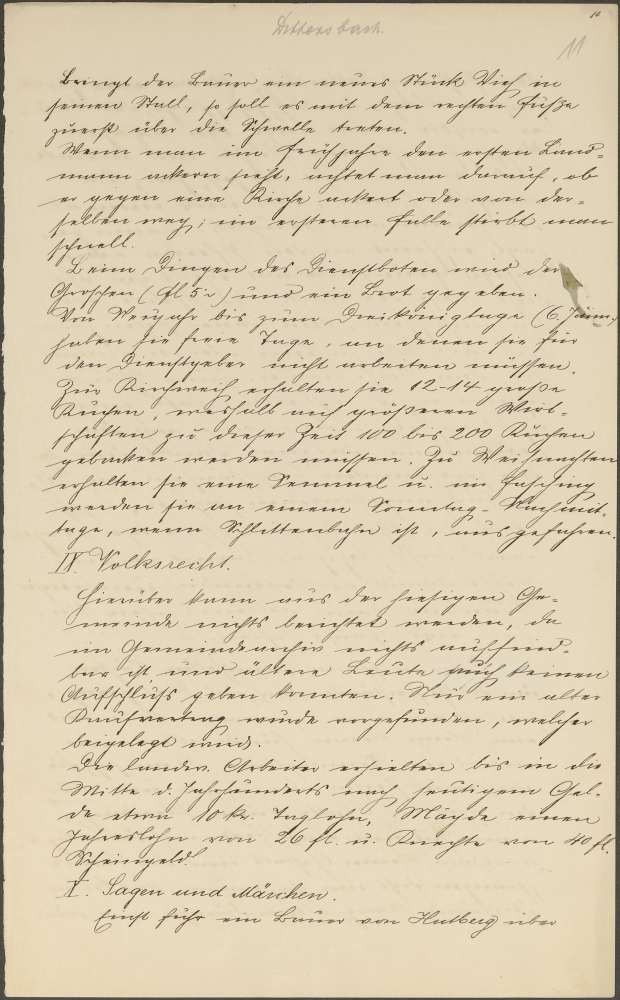 Dittersbach.
10
11
Bringt der Bauer ein neues Stück Vieh in
seinen Stall, so soll es mit dem rechten Fuße
zuerst über die Schwelle treten.
Wenn man im Frühjahre den ersten Land-
mann ackern sieht, achtet man darauf, ob
er gegen eine Kirche ackert oder von der-
selben weg; im ersteren Falle stirbt man
schnell.
Beim Dingen des Dienstboten wird der
Groschen (fl 5.-) und ein Brot gegeben.
Von Neujahr bis zum Dreikönigtage (6. Jänn.)
haben sie freie Tage, an denen sie für
den Dienstgeber nicht arbeiten müssen.
Zur Kirchweih erhalten sie 12-14 große
Kuchen, weshalb auch größeren Wirt-
schaften zu dieser Zeit 100 bis 200 Kuchen
gebacken werden müssen. Zu Weihnachten
erhalten sie eine Semmel u. im Fasching
werden sie an einem Sonntag-Nachmit-
tage, wenn Schlittenbahn ist, ausgefahren.
IV. Volksrecht.
Hierüber kann aus der hiesigen Ge-
meinde nichts berichtet werden, da
im Gemeindearchiv nichts auffind-
bar ist und ältere Leute auch keinen
Aufschluß geben konnten. Nur ein alter
Kaufvertrag wurde vorgefunden, welcher
beigelegt wird.
Die landw. Arbeiter erhielten bis in die
Mitte d. Jahrhunderts nach heutigem Gel-
de etwa 10 kr. Taglohn, Mägde einen
Jahreslohn von 26 fl. u. Knechte von 40 fl.
Scheingeld.
V. Sagen und Märchen.
Einst fuhr ein Bauer von Hutberg über